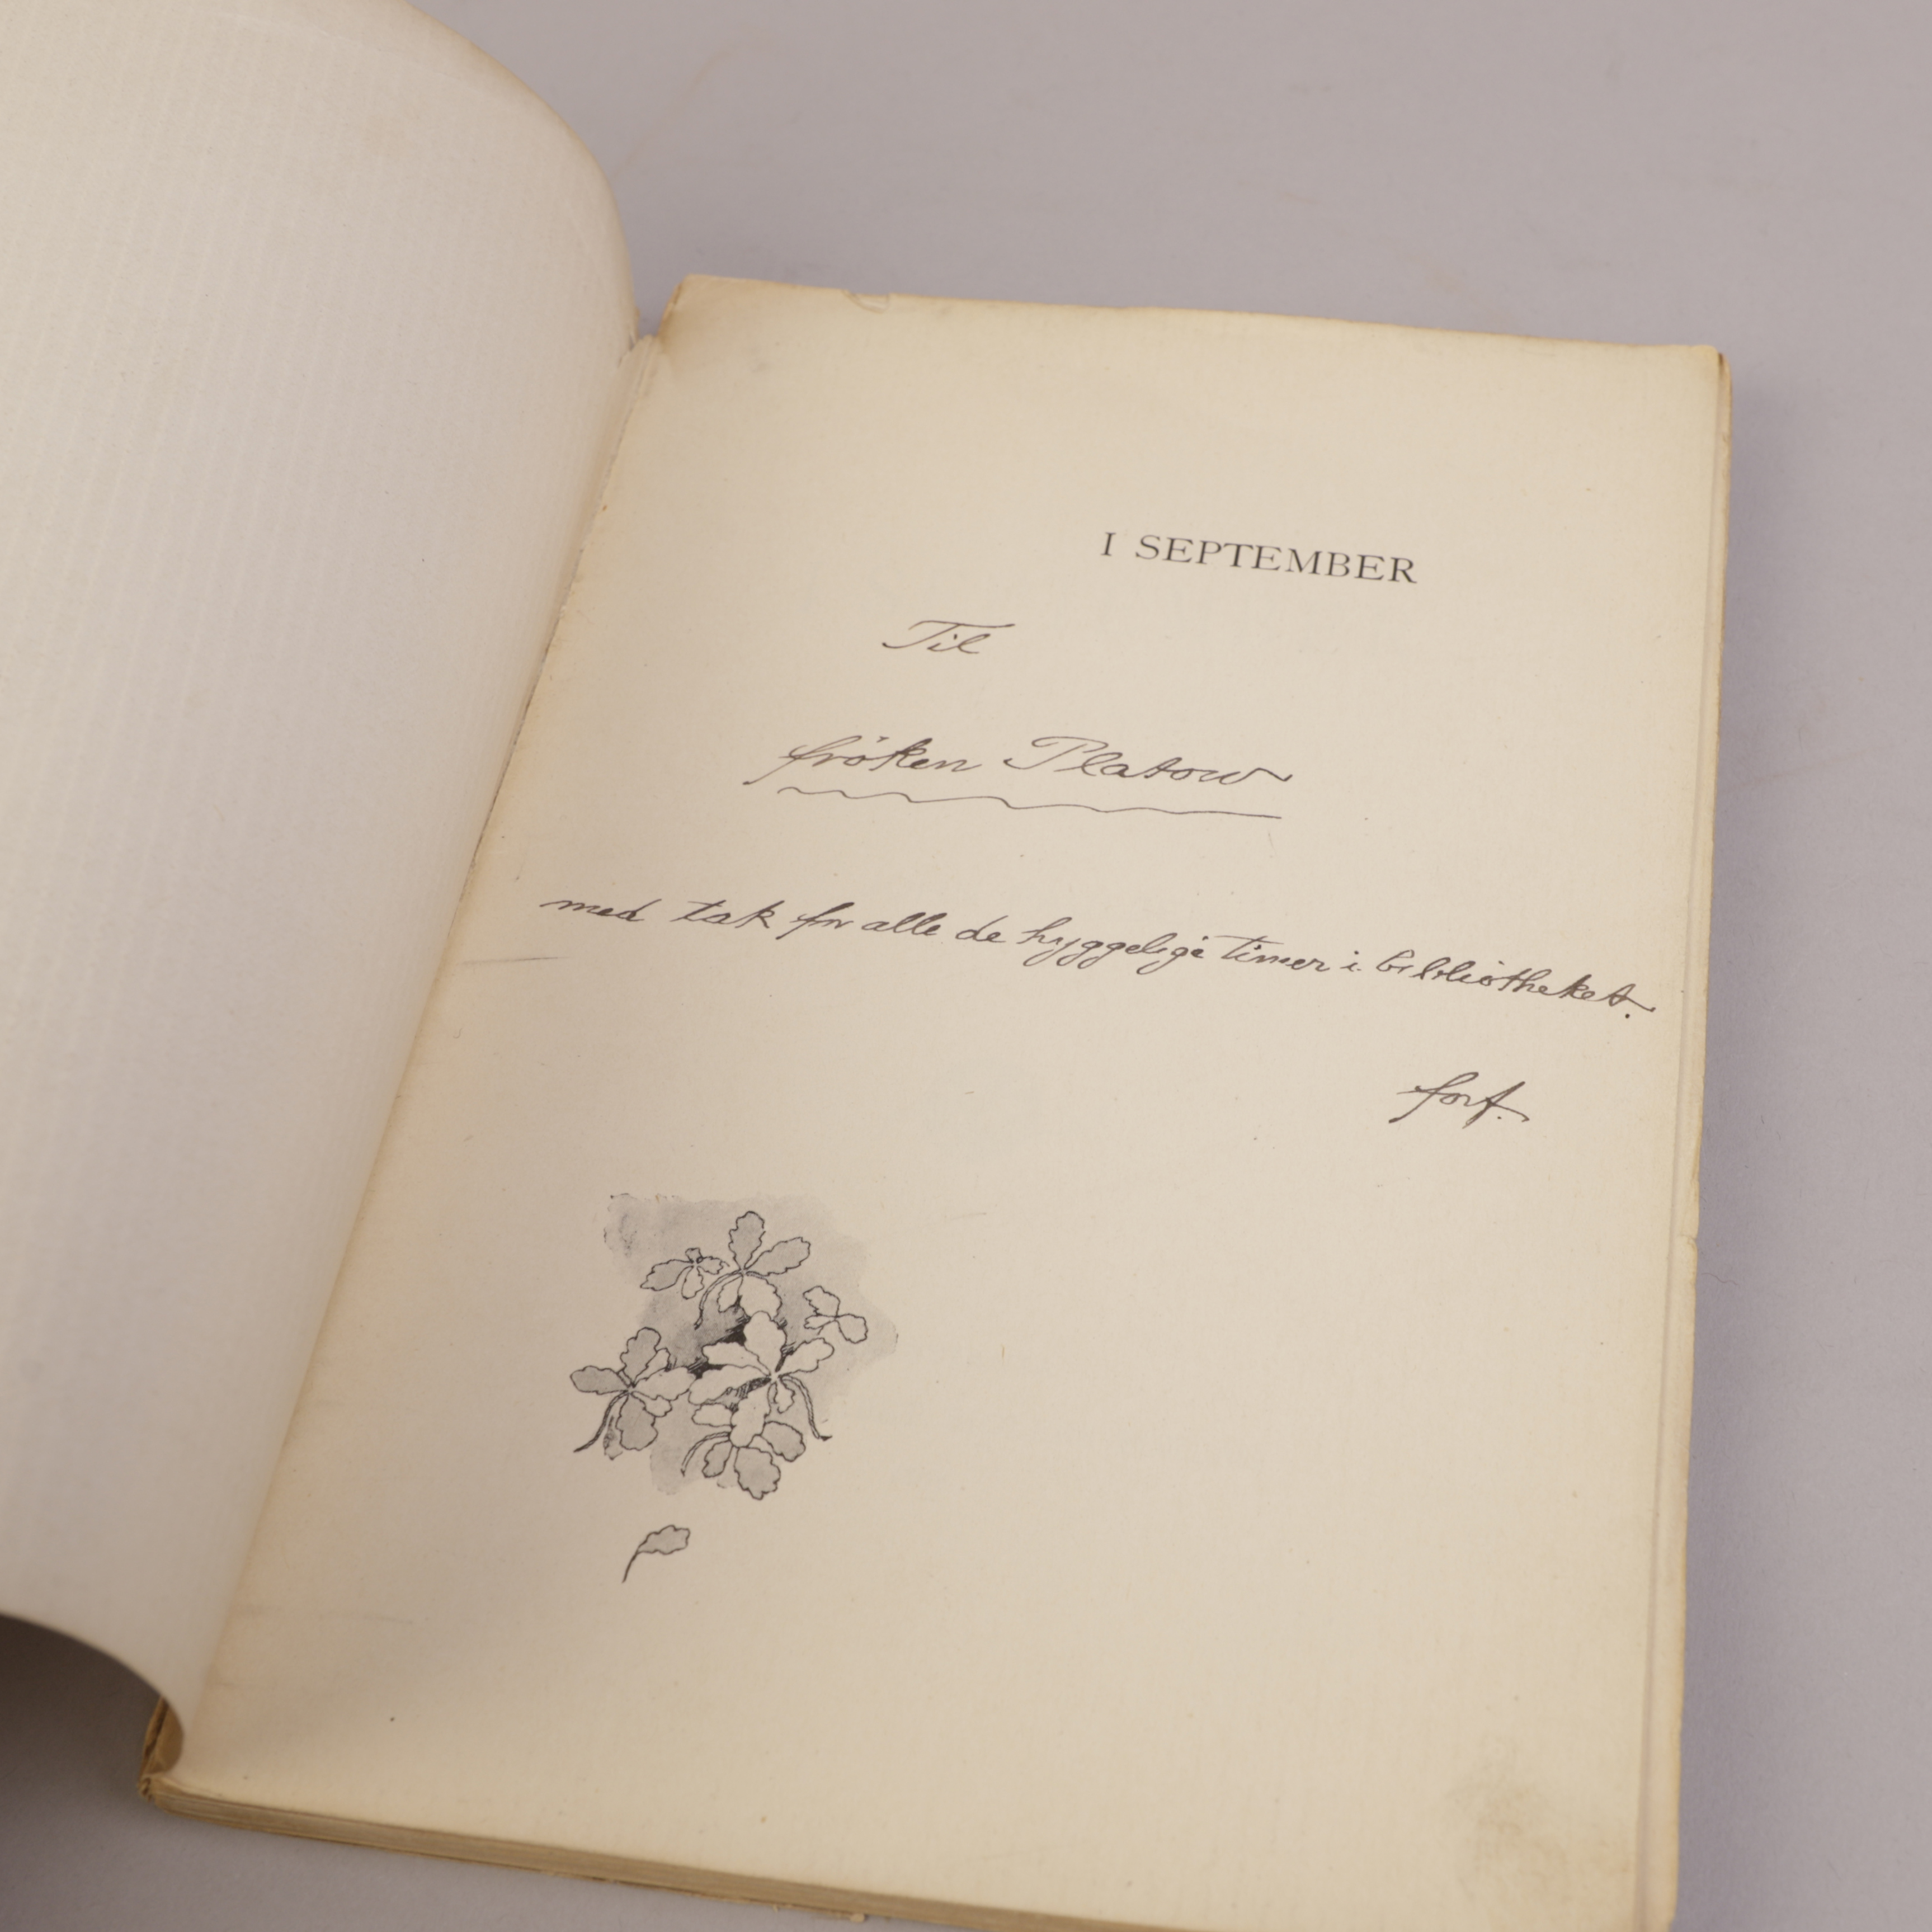 I SEPTEMBER
Til
fröken Platow
med tak for alle de hyggelige timer i bibliotheket.
forf.